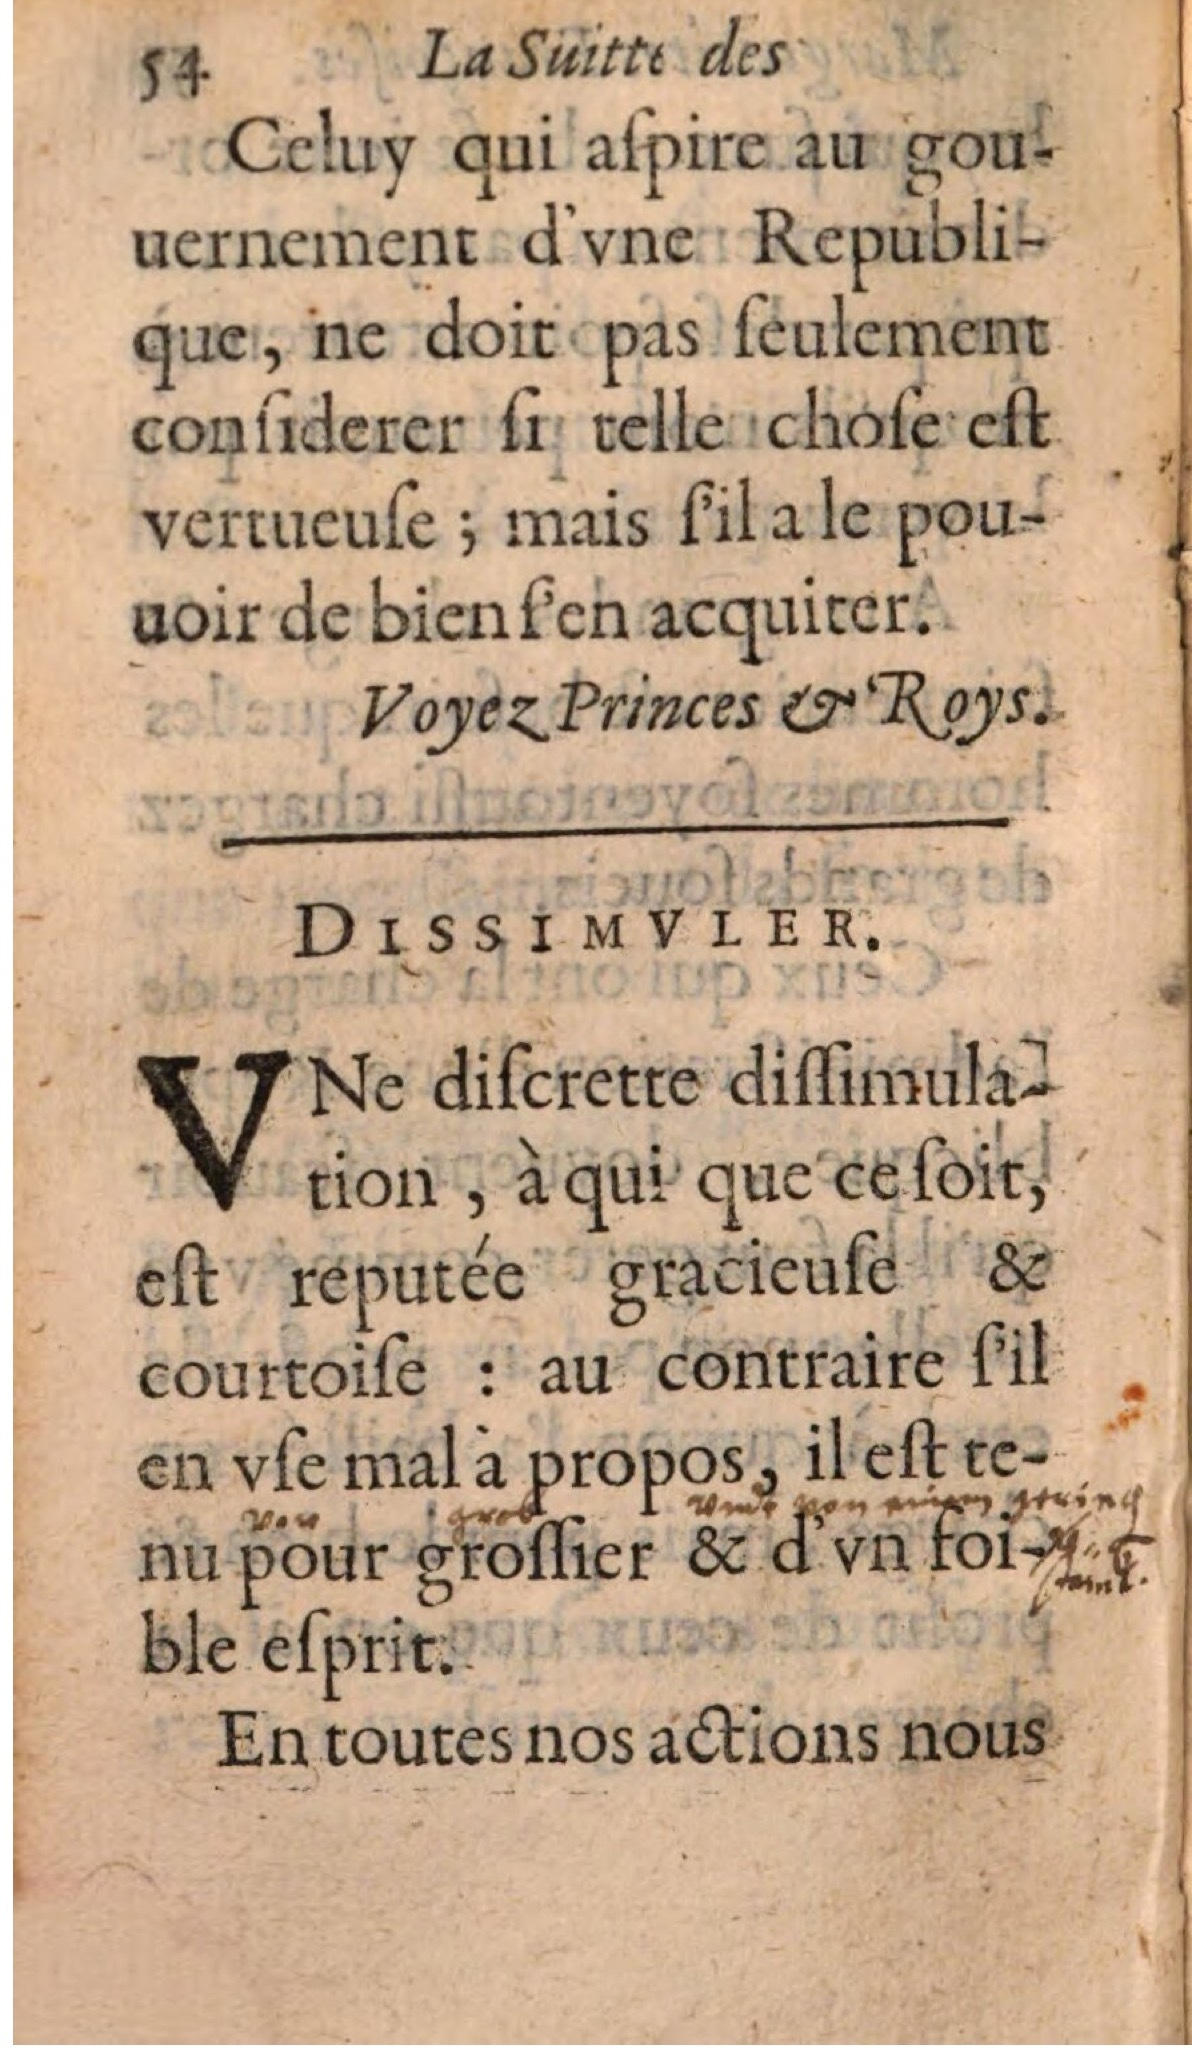 54 La Suitte des
Celuy qui aſpire au gou-
uernement d'vne Republi-
que, ne doit pas ſeulement
conſiderer ſi telle choſe eſt
vertueuſe ; mais ſ'il a le pou-
uoir de bien ſ'en acquiter.
Voyez Princes & Roys.
DISSIMVLER.
VNe diſcrette diſſimula-
tion, à qui que ce ſoit,
eſt reputée gracieuſe &
courtoiſe : au contraire ſ'il
en vſe mal à propos, il eſt te-
von grob vnd von einem gering
nu pour groſſier & d'vn foi-
ble eſprit.
En toutes nos actions nous